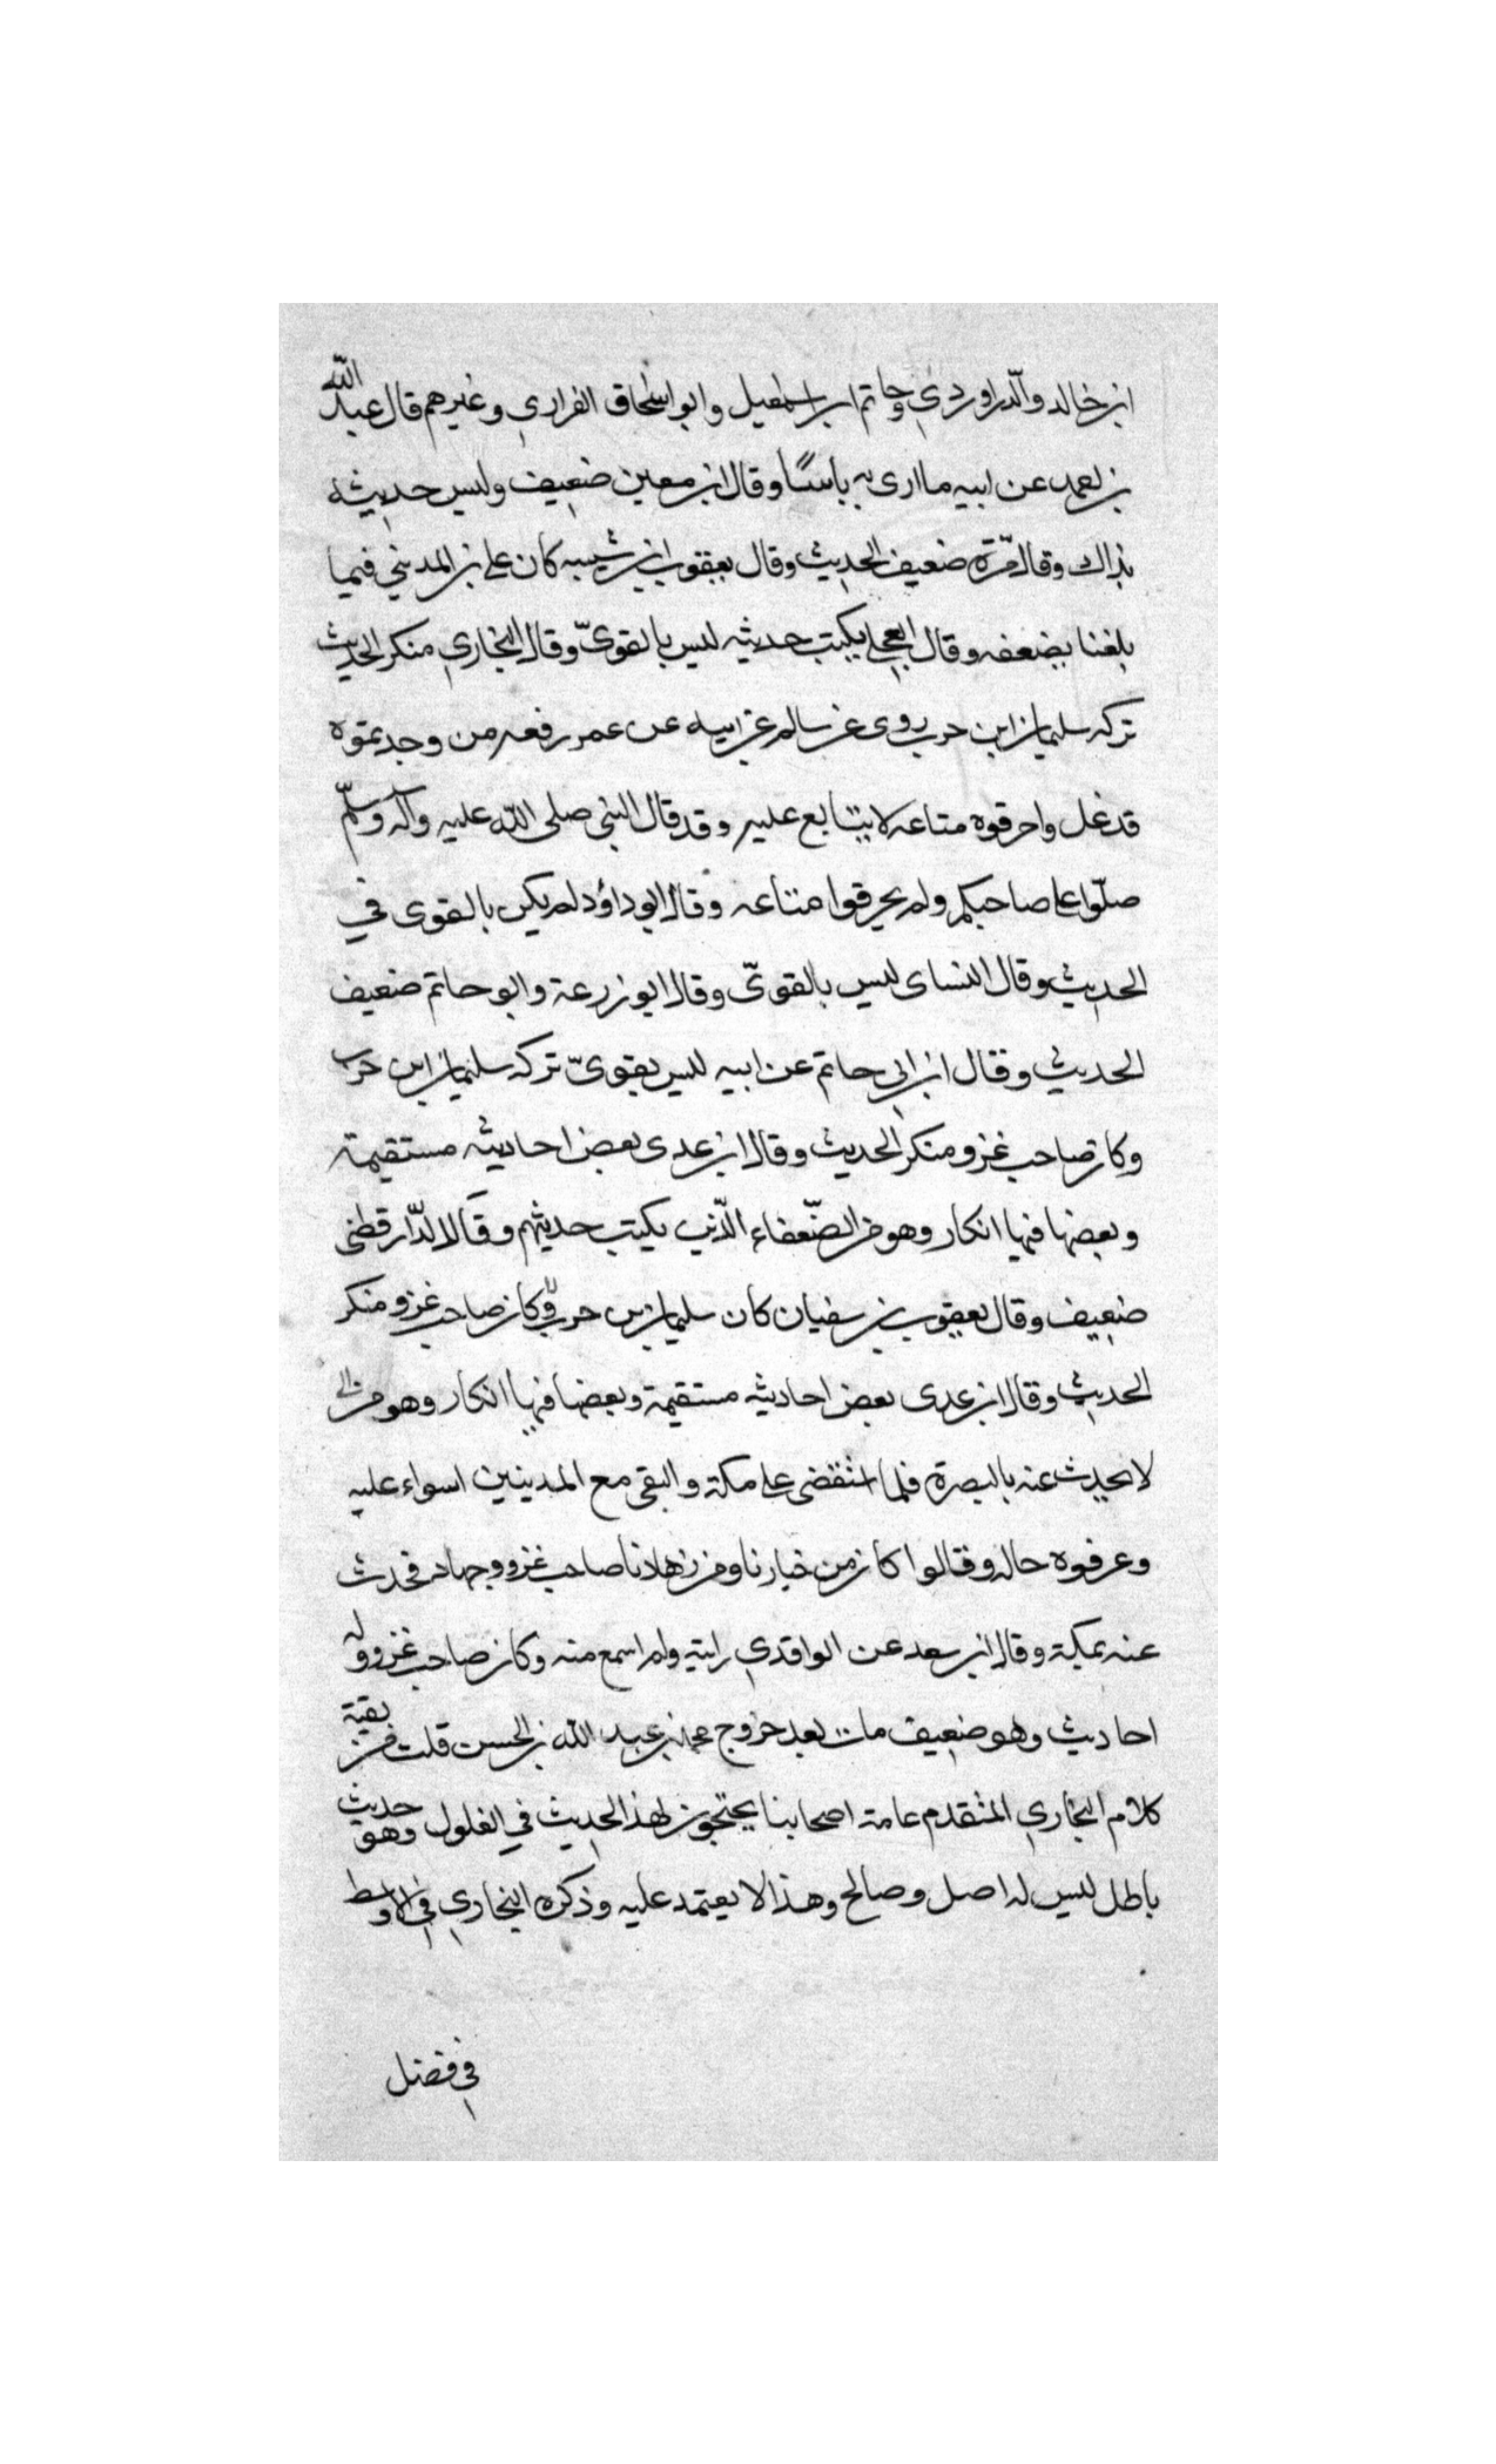 ابن خالد والدّراوردي وحاتم ابن اسمعيل وابو اسحاق الفزاري وغيرهم قال عبد الله
بن احمد عن ابيه ما ارى به باسًا وقال ابن معين ضعيف وليس حديثه
بذاك وقال مّرة ضعيف الحديث وقال يعقوب ابن شيبه كان علي بن المديني فيما
بلغنا يضعفه وقال العجلي يكتب حديثه ليس بالقويّ وقال البخاري منكر الحديث
تركه سليمان ابن حرب روى عن سالم عن ابيه عن عمر رفعه من وجدتموه
قد غل واحرقوه متاعه لا يتتابع عليه وقد قال النبي صلى الله عليه وآله وسلّم
صلّوا على صاحبكم ولم يحرقوا متاعه وقال ابو داؤد لم يكن بالقوى في
الحديث وقال النساى ليس بالقويّ وقال ابو زرعة وابو حاتم ضعيف
الحديث وقال ابن ابي حاتم عن ابيه ليس بقويّ تركه سليمان ابن حرب
وكان صاحب غزو منكر الحديث وقال ابن عدى بعض احاديثه مستقيمة
وبعضها فيها انكار وهو من الضّعفاء الّذين يكتب حديثهم وقال الدّارقطني
ضعيف وقال يعقوب بن سفيان كان سليمان بن حرب وكان صاحب غزو منكر
الحديث وقال ابن عدى بعض احاديثه مستقيمة وبعضها فيها انكار وهو من
لا يحدث عنه بالبصرة فلما انقضى على مكة والتقى مع المدينين اسواء عليه
وعرفوه حاله وقالوا كان من خيارنا ومن زهادنا صاحب غزو وجهاد فحدث
عنه بمكة وقال ابن سعد عن الواقدي رايته ولم اسمع منه وكان صاحب غزو وله
احاديث وهو ضعيف مات بعد خروج محمد بن عبد الله بن الحسن قلت من بقية
كلام البخاري المتقدم عامة اصحابنا يحتجون لهذا الحديث في الغلول وهو حديث
باطل ليس له اصل وصالح وهذا لا يعتمد عليه وذكره البخاري في الاوسط
في فضل